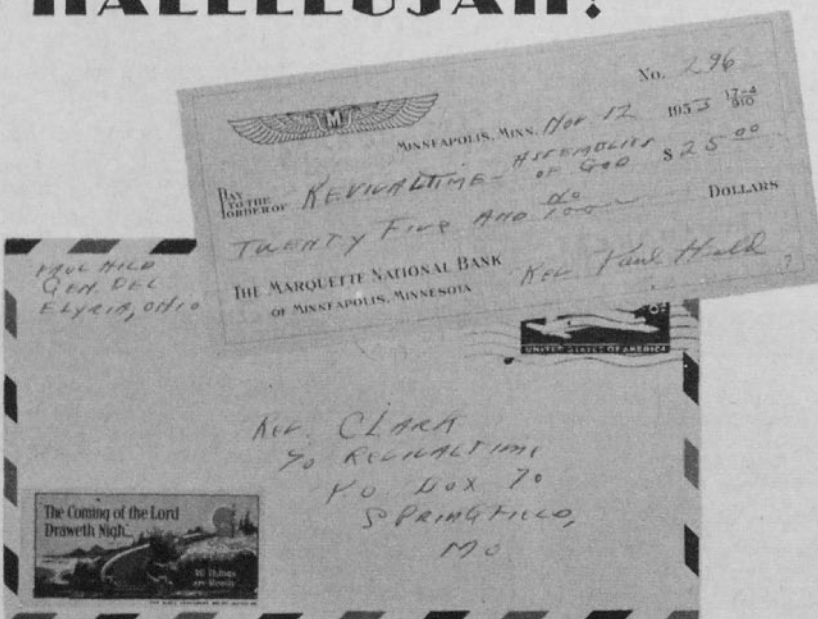 HALLELUJAH!
No. 296
M
MINNEAPOLIS, MINN. Nov 12 1953 17-4
910
PAY TO THE ORDER OF REVIVALTIME - ASSEMBLIES OF GOD $ 25 00
TWENTY FIVE AND NO/100 DOLLARS
THE MARQUETTE NATIONAL BANK
OF MINNEAPOLIS, MINNESOTA
Rev. Paul Hild
PAUL HILD
GEN. DEL
ELYRIA, OHIO
UNITED STATES OF AMERICA
REV. CLARK
% REVIVALTIME
P.O. BOX 70
SPRINGFIELD,
MO
The Coming of the Lord
Draweth Nigh...
All Things
are Ready